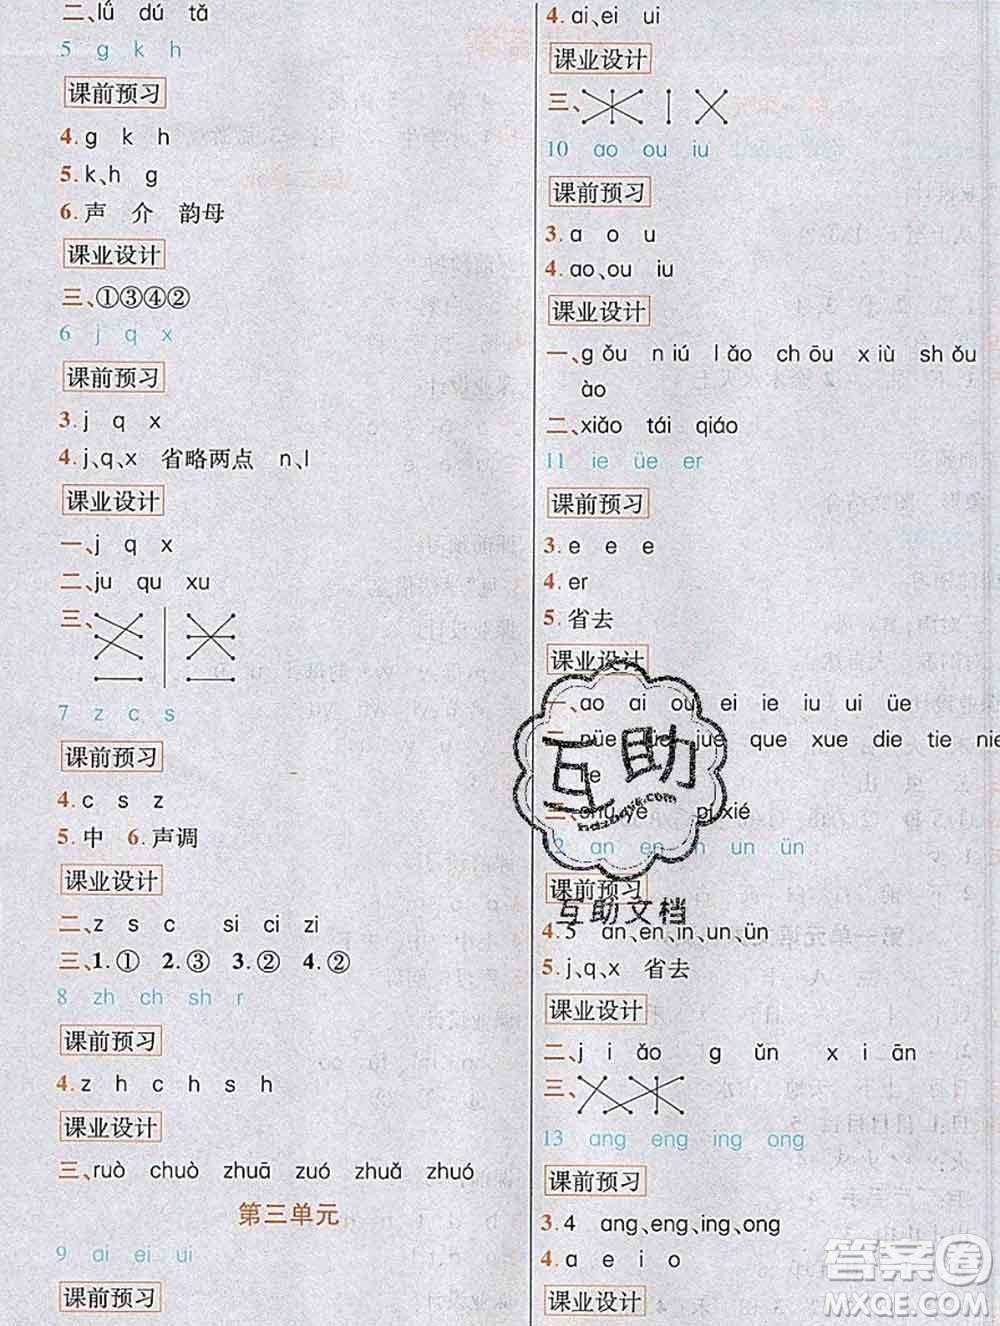 二、lǘ dú tǎ
5 g k h
课前预习
4. g k h
5. k、h g
6. 声 介 韵母
课业设计
三、①③④②
6 j q x
课前预习
3. j q x
4. j、q、x 省略两点 n、l
课业设计
一、j q x
二、ju qu xu
三、
7 z c s
课前预习
4. c s z
5. 中 6. 声调
课业设计
二、z s c si ci zi
三、1. ① 2. ③ 3. ② 4. ②
8 zh ch sh r
课前预习
4. z h c h s h
课业设计
三、ruò chuò zhuā zuó zhuǎ zhuó
第三单元
9 ai ei ui
课前预习
4. ai、ei ui
课业设计
三、
10 ao ou iu
课前预习
3. a o u
4. ao、ou iu
课业设计
一、g ǒu n iú l ǎo ch ōu x iù sh ǒu
ào
二、xiǎo tái qiáo
11 ie üe er
课前预习
3. e e e
4. er
5. 省去
课业设计
一、ao ai ou ei ie iu ui üe
二、nüe jue que xue die tie nie
三、shù yè pí xié
12 an en in un ün
课前预习
4. 5 an、en、in、un、ün
5. j、q、x 省去
课业设计
二、j i ǎo g ǔn x i ān
三、
13 ang eng ing ong
课前预习
3. 4 ang、eng、ing、ong
4. a e i o
课业设计
互助
hdzuoye.com
互助文档
答案圈
MXQE.COM